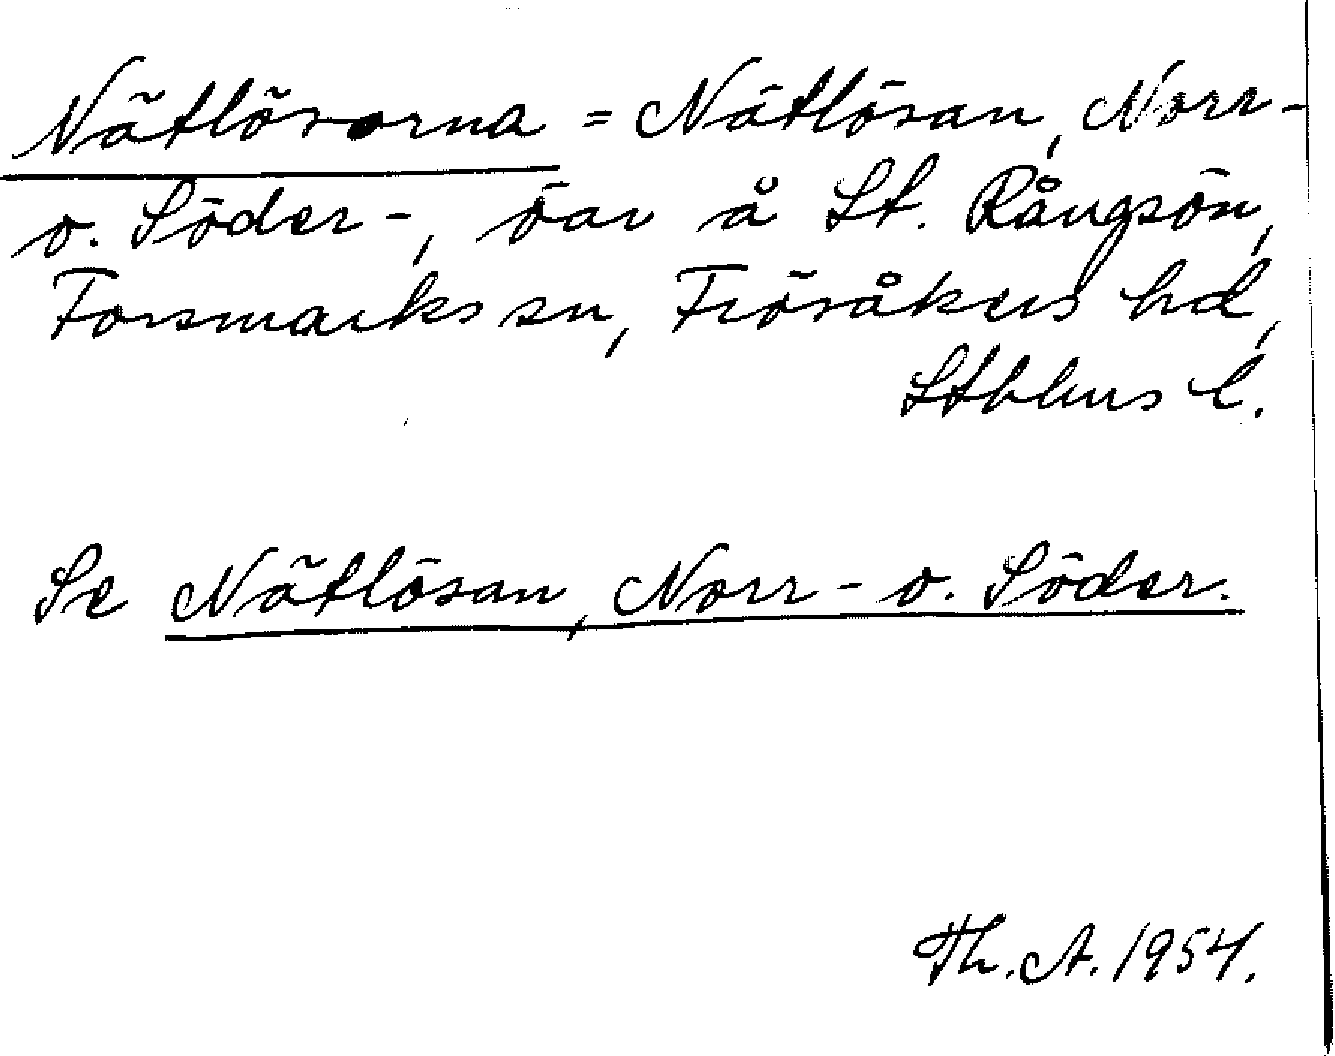 Nätlösorna = Nätlösan, Norr-
o. Söder-, öar å St. Rångsön,
Forsmarks sn, Frösåkers hd,
Sthlms l.
Se Nätlösan, Norr- o. Söder.
Th. A. 1954.